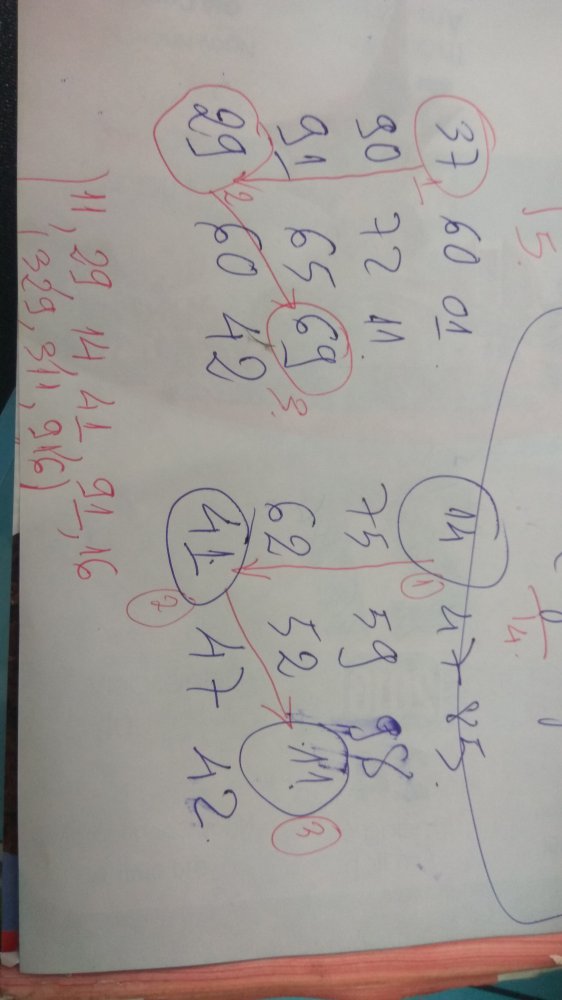 15.
14.
37 60 01 14 47 85
1 1
90 72 11 75 59 98
91 65 69 62 52 11
3. 3
29 60 42 41 47 42
2 2
11, 29, 14 41 91, 16
(329, 311, 916)